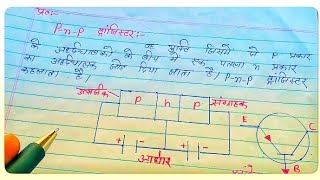 प्रश्न:-
P-n-P ट्रांजिस्टर:-
वह युक्ति जिसमें दो P प्रकार
के अर्द्धचालकों के बीच में एक पतला n प्रकार
का अर्द्धचालक जोड़ दिया जाता है। P-n-P ट्रांजिस्टर
कहलाता है।
उत्सर्जक
संग्राहक
P n P
E C
+ - + -
आधार
B